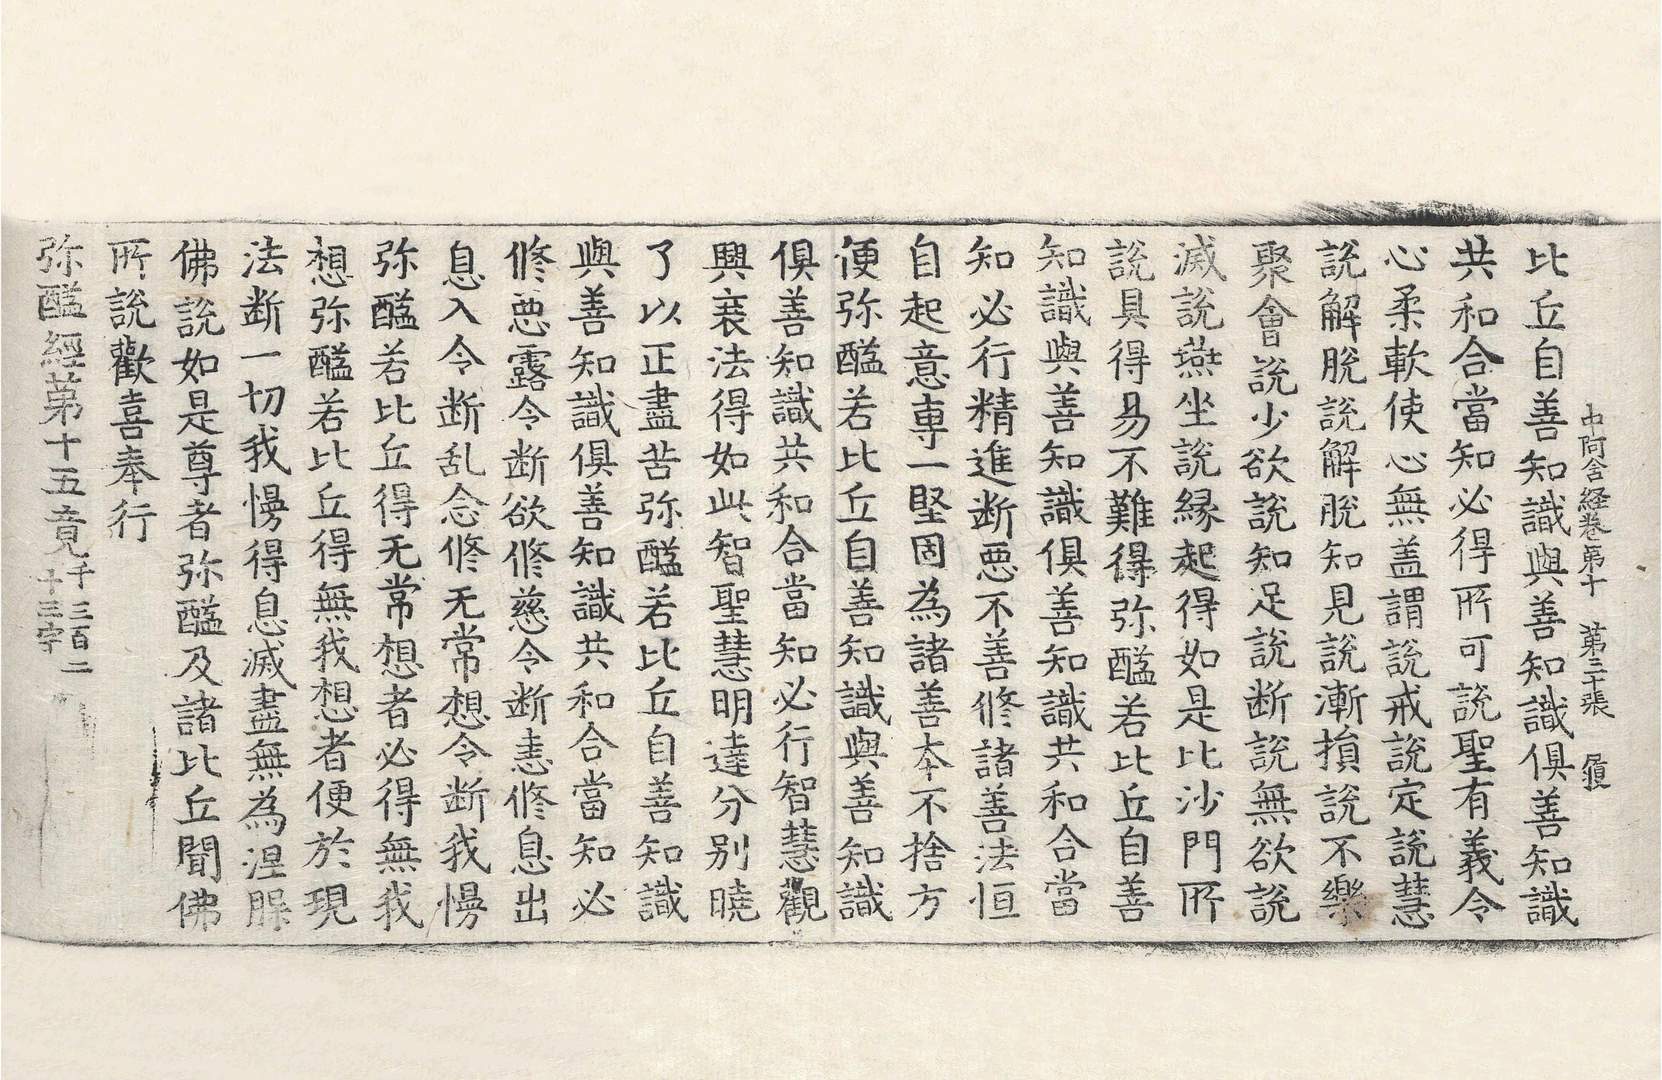 中阿含経卷第十　第三十張　履
比丘自善知識與善知識俱善知識
共和合當知必得所可說聖有義令
心柔軟使心無盖謂說戒說定說慧
說解脫說解脫知見說漸損說不樂
聚會說少欲說知足說断說無欲說
滅說燕坐說緣起得如是比沙門所
說具得易不難得弥醯若比丘自善
知識與善知識俱善知識共和合當
知必行精進断惡不善修諸善法恒
自起意專一堅固為諸善本不捨方
便弥醯若比丘自善知識與善知識
俱善知識共和合當知必行智慧觀
興衰法得如此智聖慧明達分別曉
了以正盡苦弥醯若比丘自善知識
與善知識俱善知識共和合當知必
修惡露令断欲修慈令断恚修息出
息入令断乱念修无常想令断我慢
弥醯若比丘得无常想者必得無我
想弥醯若比丘得無我想者便於現
法断一切我慢得息滅盡無為涅槃
佛說如是尊者弥醯及諸比丘聞佛
所說歡喜奉行
弥醯經第十五竟千三百二十三字